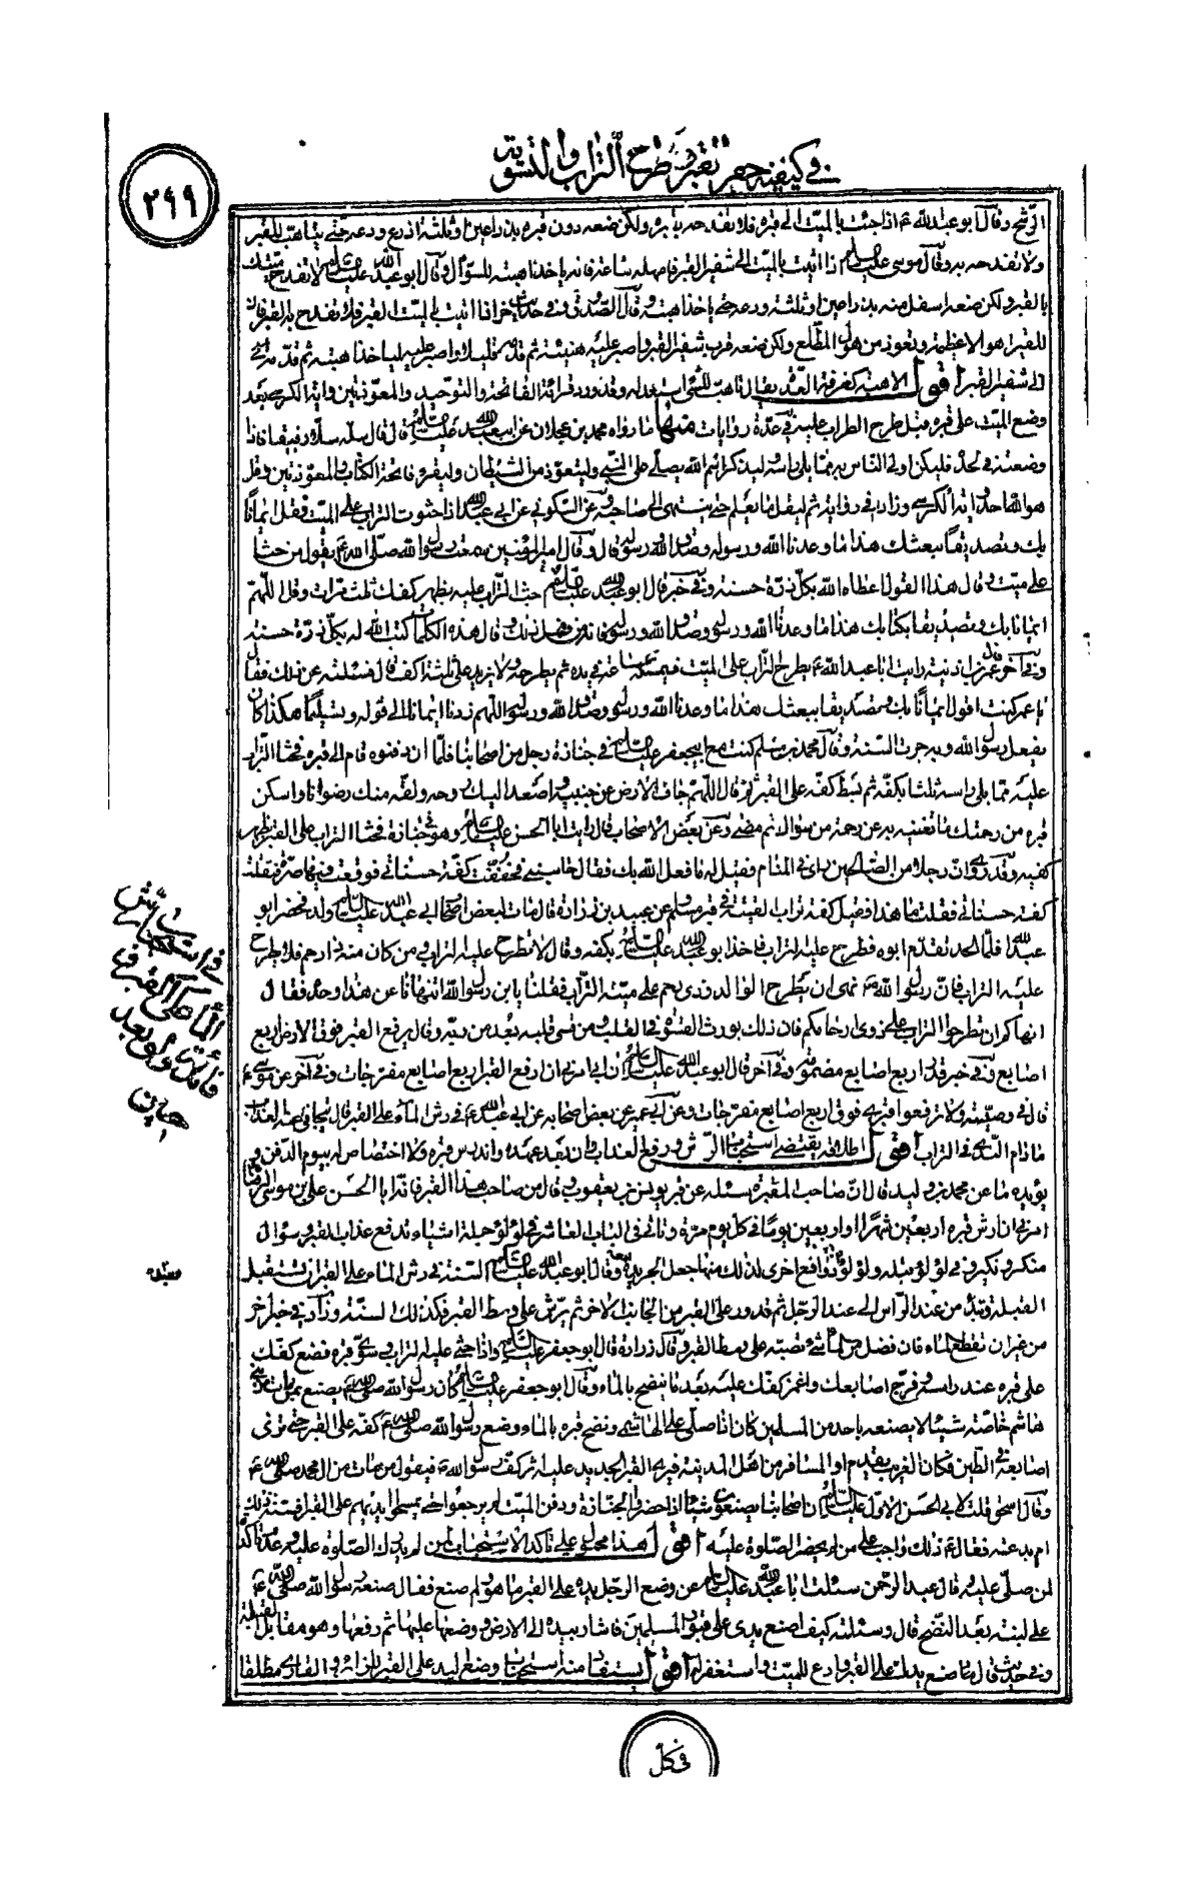 في كيفية حفر القبر وطرح التراب والتسوية
٢٩٩
الرشح وقال ابو عبدالله ع اذا جئت بالميت الى قبره فلا تفدحه بقبره ولكن ضعه دون قبره بذراعين او ثلثة اذرع ودعه حتى يتاهب للقبر
ولا تفدحه به وقال موسى عليه السلام اذا اتيت بالميت الى شفير القبر فامهله ساعة فانه ياخذ اهبته للسؤال وقال ابو عبد الله عليه السلام لا تفدح ميتك
بالقبر ولكن ضعه اسفل منه بذراعين او ثلثة ودعه حتى ياخذ اهبته وقال الصدوق وفي حديث اخر اذا اتيت بالميت القبر فلا تفدح به القبر فان
للقبر اهوالا عظيمة وتعوذ من هول المطلع ولكن ضعه قرب شفير القبر واصبر عليه هنيئة ثم قدمه قليلا واصبر عليه لياخذ اهبته ثم قدمه
الى شفير القبر اقول الاهبة كغرفة العدة يقال تاهب للشئ استعد له وقد ورد قرائة الفاتحة والتوحيد والمعوذتين واية الكرسي بعد
وضع الميت على قبره قبل طرح التراب عليه في عدة روايات منها ما رواه محمد بن عجلان عن ابي عبد الله عليه السلام قال قال سله سلا رفيقا فاذا
وضعته في لحده فليكن اولى الناس به مما يلي راسه ليذكر اسم الله يصلي على النبي وليتعوذ من الشيطان وليقرء فاتحة الكتاب والمعوذتين وقل
هو الله احد واية الكرسي وزاد في رواية ثم ليقل ما يعلم حتى ينتهي الى صاحبه وعن السكوني عن ابي عبد الله اذا حثوت التراب على الميت فقل ايمانا
بك وتصديقا ببعثك هذا ما وعدنا الله ورسوله وصدق الله ورسوله قال وقال امير المؤمنين سمعت رسول الله صلى الله ع يقول من حثا
على ميت وقال هذا القول اعطاه الله بكل ذرة حسنة وفي خبر قال ابو عبد الله عليه السلام حث التراب عليه بظهر كفك ثلث مرات وقل اللهم
ايمانا بك وتصديقا بكتابك هذا ما وعدنا الله ورسوله وصدق الله ورسوله فانه من فعل ذلك وقال هذه الكلمات كتب الله له بكل ذرة حسنة
وفي آخر عن عمر بن اذينة رايت ابا عبد الله ع يطرح التراب على الميت فيمسكه ساعة في يده ثم يطرحه ولا يزيد على ثلثة اكف قال فسئلته عن ذلك فقال
يا عمر كنت اقول ايمانا بك وتصديقا ببعثك هذا ما وعدنا الله ورسوله وصدق الله ورسوله اللهم زدنا ايمانا الى قوله وتسليما هكذا كان
يفعل رسول الله وبه جرت السنة وقال محمد بن مسلم كنت مع ابي جعفر عليه السلام في جنازة رجل من اصحابنا فلما ان دفنوه قام الى قبره فحثا التراب
عليه مما يلي راسه ثلثا بكفه ثم بسط كفه على القبر ثم قال اللهم جاف الارض عن جنبيه واصعد اليك روحه ولقه منك رضوانا واسكن
قبره من رحمتك ما تغنيه به عن رحمة من سواك ثم مضى وعن بعض الاصحاب قال رايت ابا الحسن عليه السلام وهو في جنازة فحثا التراب على القبر بظهر
كفيه وقد روى ان رجلا من الصالحين راى في المنام فقيل له ما فعل الله بك فقال حاسبني فخففت كفة حسناتي فوقعت فيها صرة فثقلت
كفة حسناتي فقلت ما هذا فقيل كف تراب القيته في قبر مسلم وعن عبيد بن زرارة قال مات لبعض اصحاب ابي عبد الله عليه السلام ولد فحضر ابو
عبد الله فلما الحد تقدم ابوه فطرح عليه التراب فاخذ ابو عبد الله عليه السلام بكفه وقال لا تطرح عليه التراب ومن كان منه ذا رحم فلا يطرح
عليه التراب فان رسول الله ص نهى ان يطرح الوالد وذي رحم على ميته التراب فقلنا يا بن رسول الله اتنهانا عن هذا وحده فقال
انهاكم ان تطرحوا التراب على ذوي ارحامكم فان ذلك يورث القسوة في القلب ومن قسى قلبه بعد من ربه وقال يرفع القبر فوق الارض اربع
اصابع وفي خبر قدر اربع اصابع مضمومة وفي آخر قال ابو عبد الله عليه السلام ان ابي امرني ان ارفع القبر اربع اصابع مفرجات وفي آخر عن موسى ع
قال في وصيته ولا ترفعوا قبري فوق اربع اصابع مفرجات وعن ابي عمير عن بعض اصحابه عن ابي عبد الله ع في رش الماء على القبر قال يتجافى عنه العذاب
ما دام الندى في التراب اقول اطلاقه يقتضي استحباب الرش ورفع العذاب وان بعد عهده واندرس قبره ولا اختصاص له بيوم الدفن و
يؤيده ما عن محمد بن وليد قال ان صاحب المقبرة سئله عن قبر يونس بن يعقوب وقال من صاحب هذا القبر فان ابا الحسن علي بن موسى الرضا
امرني ان ارش قبره اربعين شهرا او اربعين يوما في كل يوم مرة وتاتي في الباب العاشر في لؤلؤ جملة اشياء تدفع عذاب القبر وسؤال
منكر ونكير وفي لؤلؤ قبله ولؤلؤ دوافع اخرى لذلك منها جعل الجريدة معه وقال ابو عبد الله عليه السلام السنة في رش الماء على القبر ان تستقبل
القبلة وتبدء من عند الراس الى عند الرجل ثم تدور على القبر من الجانب الاخر ثم يرش على وسط القبر فكذلك السنة وزاد في خبر اخر
من غير ان تقطع الماء فان فضل من الماء شئ فصبه على وسط القبر وقال زرارة قال ابو جعفر عليه السلام واذا حثي عليه التراب وسوى قبره فضع كفك
على قبره عند راسه وفرج اصابعك واغمز كفك عليه بعد ما ينضح بالماء وقال ابو جعفر عليه السلام كان رسول الله صلى الله ع يصنع بمن مات من بني
هاشم خاصة شيئا لا يصنعه باحد من المسلمين كان اذا صلى على الهاشمي ونضح قبره بالماء وضع رسول الله صلى الله ع كفه على القبر حتى ترى
اصابعه في الطين فكان الغريب يقدم او المسافر من اهل المدينة فيرى القبر الجديد عليه اثر كف رسول الله ص فيقول من مات من ال محمد صلى الله ع
وقال اسحق قلت لابي الحسن الاول عليه السلام ان اصحابنا يصنعون شيئا اذا حضروا الجنازة ودفن الميت لم يرجعوا حتى يمسحوا ايديهم على القبر افسنة ذلك
ام بدعة فقال ع ذلك واجب على من لم يحضر الصلوة عليه اقول هذا محمول على تاكد الاستحباب لمن لم يدرك الصلوة عليه وعدم تاكده
لمن صلى عليه وقال عبد الرحمن سئلت ابا عبد الله عليه السلام عن وضع الرجل يده على القبر ما هو ولم صنع فقال صنعه رسول الله صلى الله ع
على ابنته بعد النضح قال وسئلته كيف اصنع يدي على قبور المسلمين فاشار بيده الى الارض ووضعها عليها ثم رفعها وهو مقابل القبلة
وفي حديث قال ما صنع يدك على القبر وادع للميت واستغفر له اقول يستفاد منه استحباب وضع اليد على القبر للزائر والقاري مطلقا
في استحباب رش
الماء على القبر و
فائدته ولو بعد
في كل